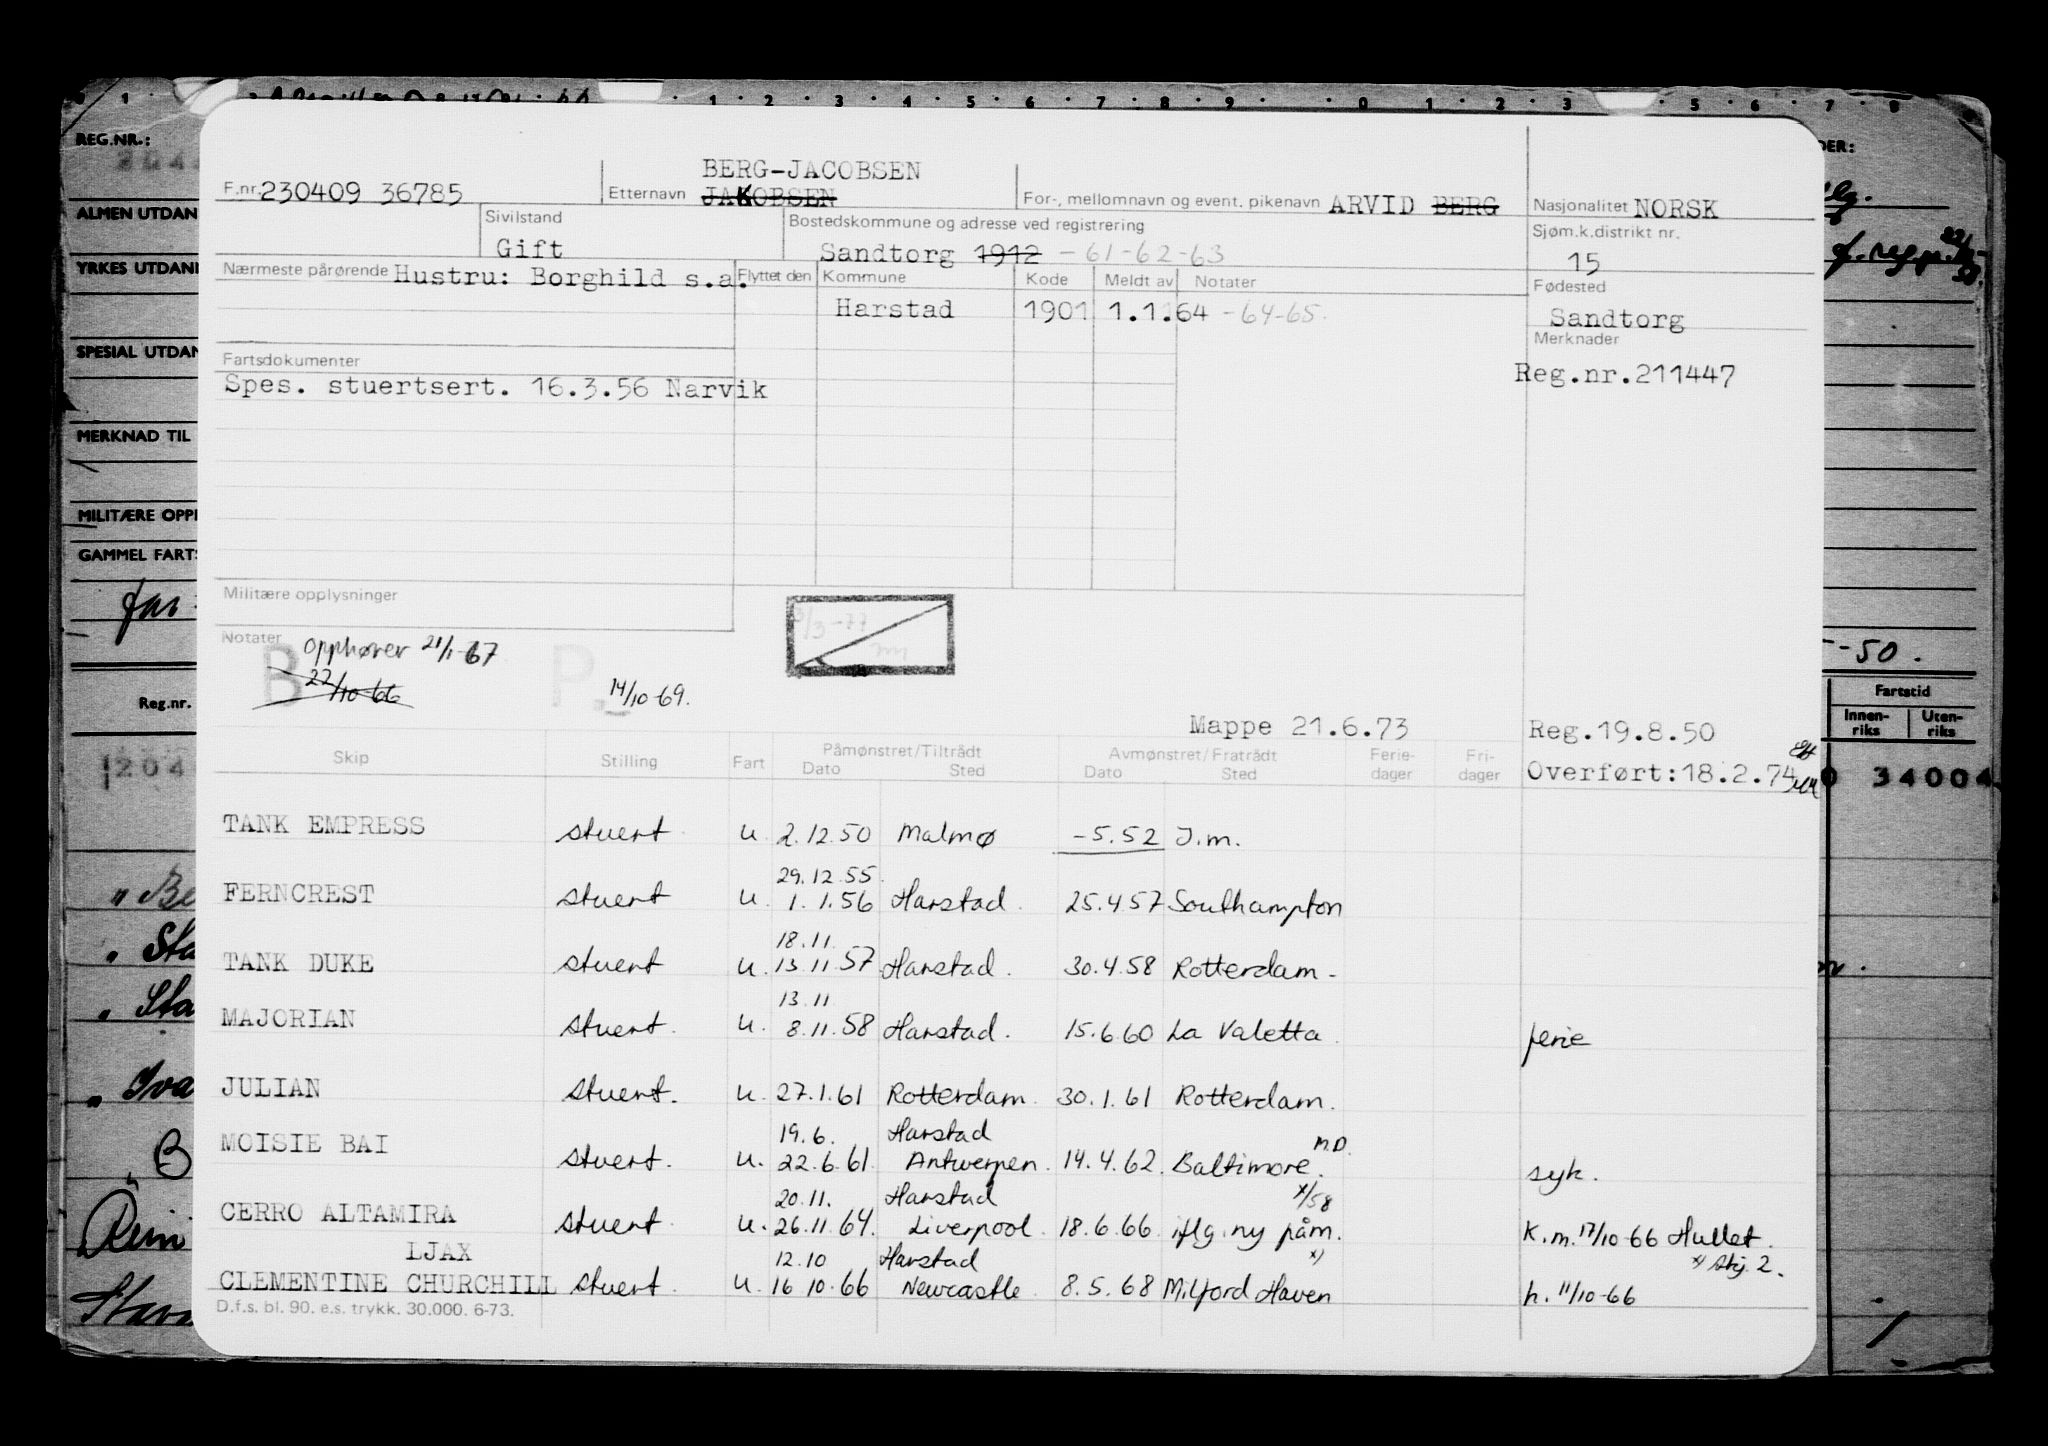 REG.NR.:
F.nr. 230409 36785
BERG-JACOBSEN
Etternavn JAKOBSEN
For-, mellomnavn og event. pikenavn ARVID BERG
Nasjonalitet NORSK
ALMEN UTDAN
Sivilstand
Gift
Bostedskommune og adresse ved registrering
Sandtorg 1912 - 61-62-63
Sjøm.k.distrikt nr.
15
YRKES UTDANI
Nærmeste pårørende Hustru: Borghild s.a.
Flyttet den Kommune Kode Meldt av Notater
Harstad 1901 1.1.64 - 64-65.
Fødested
Sandtorg
SPESIAL UTDAN
Fartsdokumenter
Spes. stuertsert. 16.3.56 Narvik
Merknader
Reg.nr.211447
MERKNAD TIL
MILITÆRE OPPI
GAMMEL FARTS
Militære opplysninger
Notater
B Opphører 21/1-67
22/10-66
P. 14/10-69.
3/3-77
-50.
Mappe 21.6.73
Reg.19.8.50
Overført:18.2.74
Reg.nr.
Fartstid
Innen-riks Uten-riks
204
34004
Skip Stilling Fart Påmønstret/Tiltrådt Dato Sted Avmønstret/Fratrådt Dato Sted Ferie-dager Fri-dager
TANK EMPRESS stuert u. 2.12.50 Malmø -5.52 J.m.
29.12.55
FERNCREST stuert u. 1.1.56 Harstad. 25.4.57 Southampton
18.11.
TANK DUKE stuert u. 13.11.57 Harstad. 30.4.58 Rotterdam-
13.11
MAJORIAN stuert. u. 8.11.58 Harstad. 15.6.60 La Valetta. ferie
JULIAN stuert. u. 27.1.61 Rotterdam. 30.1.61 Rotterdam.
19.6. Harstad
MOISIE BAI stuert. u. 22.6.61. Antwerpen. 14.4.62. Baltimore. M.D. syk.
20.11. Harstad x/58
CERRO ALTAMIRA stuert. u. 26.11.64. Liverpool. 18.6.66. iflg. ny påm. K.m. 17/10-66 Hullet.
LJAX 12.10 Harstad x) x) Stj. 2.
CLEMENTINE CHURCHILL stuert. u. 16 10.66 Newcastle. 8.5.68 Milford Haven h. 11/10-66
D.f.s. bl. 90. e.s. trykk. 30.000. 6-73.